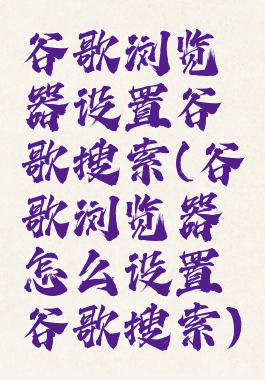 谷歌浏览
器设置谷
歌搜索(谷
歌浏览器
怎么设置
谷歌搜索)